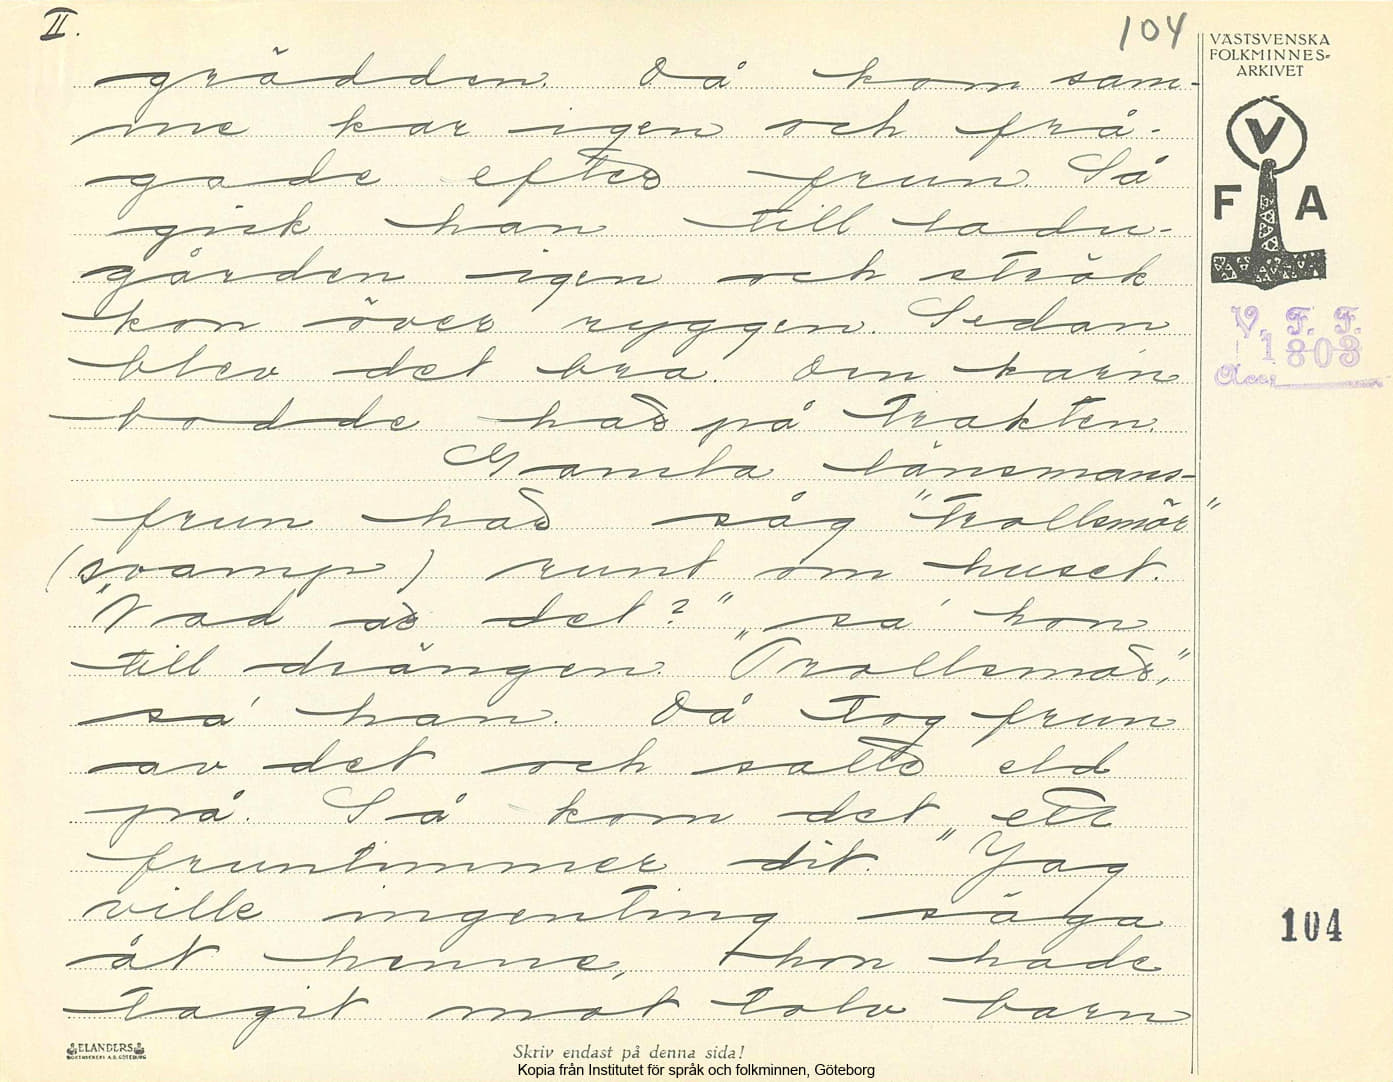 II.
104
grädden. Då kom sam-
me kar igen och frå-
gade efter frun. Så
gick han till ladu-
gården igen och strök
kon över ryggen. Sedan
blev det bra. Den karn
bodde här på trakten.
Gamla länsmans-
frun här såg "trollsmör"
(svamp) runt om huset.
"Vad är det?" sa' hon
till drängen. "Trollsmör,"
sa' han. Då tog frun
av det och satte eld
på. Så kom det ett
fruntimmer dit. "Jag
ville ingenting säga
åt henne, hon hade
tagit mot tolv barn
VÄSTSVENSKA
FOLKMINNES-
ARKIVET
V
F A
V. F. F.
1803
Acc.
104
ELANDERS
BOKTRYCKERI A.B. GÖTEBORG
Skriv endast på denna sida!
Kopia från Institutet för språk och folkminnen, Göteborg